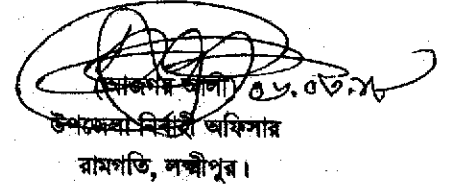 (আজগর আলী)
উপজেলা নির্বাহী অফিসার
রামগতি, লক্ষ্মীপুর।